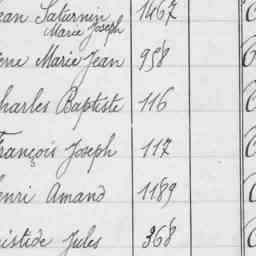 ean Saturnin 1467
Marie Joseph
ené Marie Jean 958
harles Baptiste 116
rançois Joseph 117
enri Amand 1189
istide Jules 368